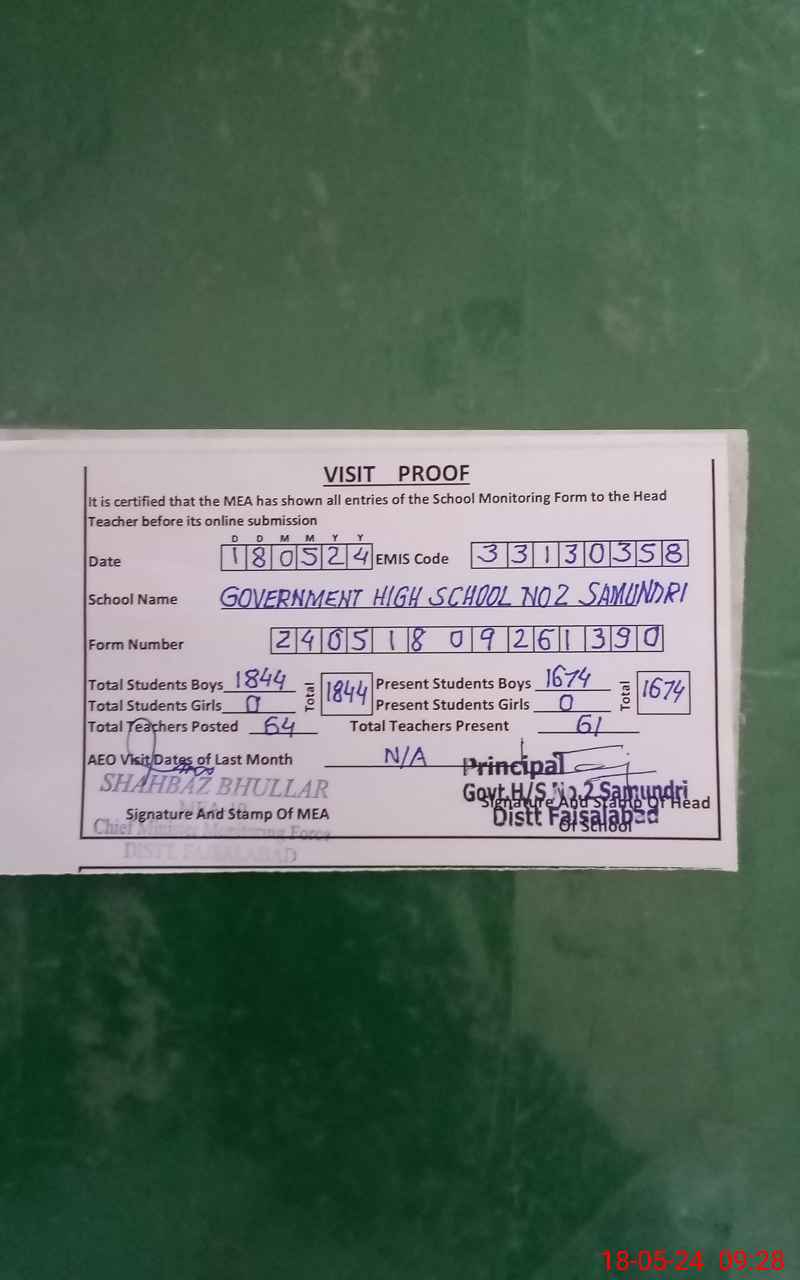 VISIT PROOF
It is certified that the MEA has shown all entries of the School Monitoring Form to the Head
Teacher before its online submission
D D M M Y Y
Date 180524 EMIS Code 33130358
School Name GOVERNMENT HIGH SCHOOL NO2 SAMUNDRI
Form Number 24051809261390
Total Students Boys 1844 Total 1844 Present Students Boys 1674 Total 1674
Total Students Girls 0 Present Students Girls 0
Total Teachers Posted 64 Total Teachers Present 61
AEO Visit Dates of Last Month N/A
SHAHBAZ BHULLAR
Signature And Stamp Of MEA
Chief Minister Monitoring Force
DISTT. FAISALABAD
Principal
Govt.H/S No.2 Samundri
Distt Faisalabad
Signature And Stamp Of Head
Of School
18-05-24 09:28